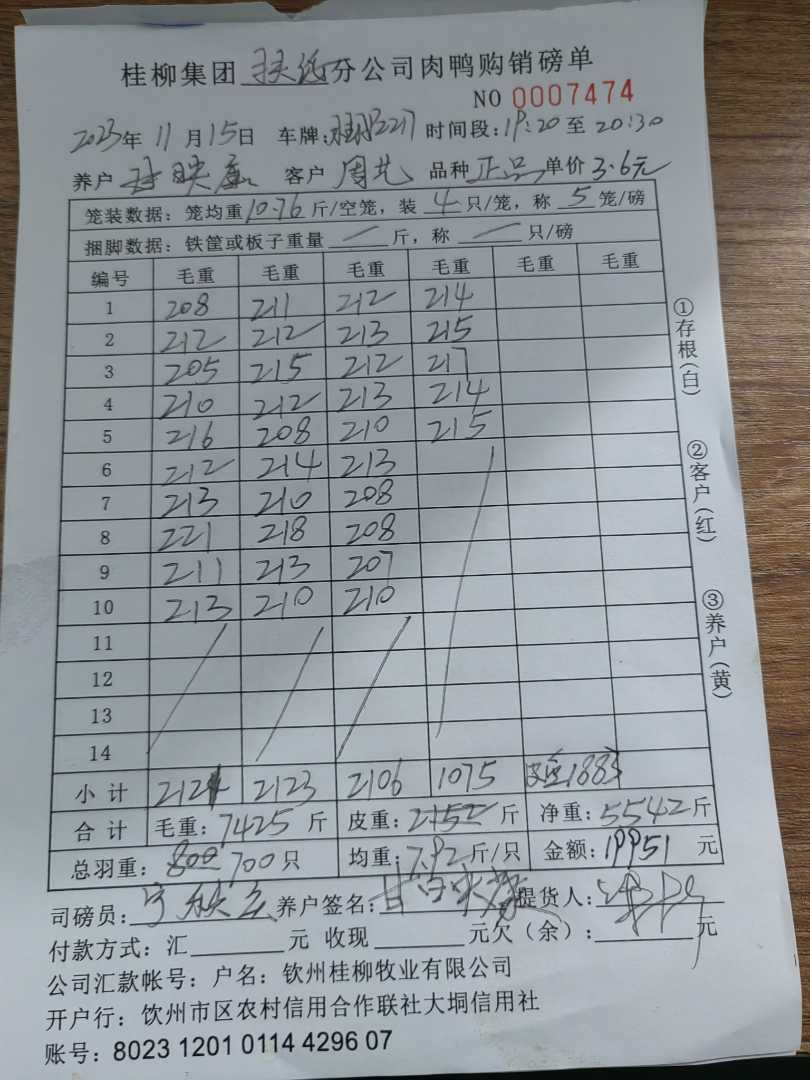 桂柳集团 扶绥 分公司肉鸭购销磅单
NO 0007474
2023年 11月15日 车牌: 时间段:19:20至20:30
养户 客户 周 品种 正品 单价 3.6元
笼装数据: 笼均重10.76斤/空笼, 装 4 只/笼, 称 5 笼/磅
捆脚数据: 铁筐或板子重量 / 斤, 称 / 只/磅
编号 毛重 毛重 毛重 毛重 毛重 毛重
1 208 211 212 214
2 212 212 213 215
3 205 215 212 217
4 210 212 213 214
5 216 208 210 215
6 212 214 213
7 213 210 208
8 221 218 208
9 211 213 207
10 213 210 210
11
12
13
14
小计 2121 2123 2106 1075 皮重1883
合计 毛重: 7425 斤 皮重: 斤 净重: 5542斤
总羽重: 700只 均重: 7.92斤/只 金额: 19951 元
司磅员: 养户签名: 提货人:
付款方式: 汇 元 收现 元欠(余): 元
公司汇款帐号: 户名: 钦州桂柳牧业有限公司
开户行: 饮州市区农村信用合作联社大垌信用社
账号: 8023 1201 0114 4296 07
①存根(白)
②客户(红)
③养户(黄)